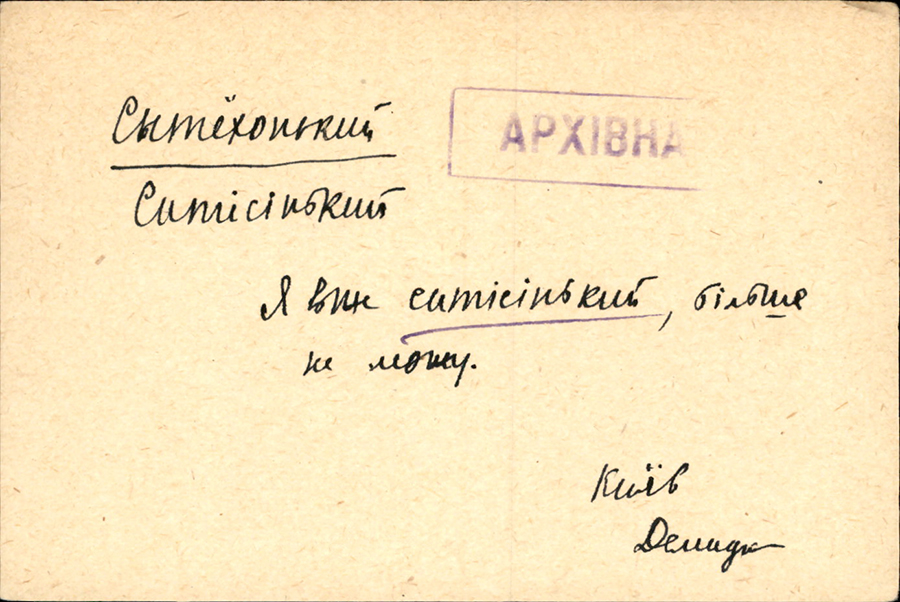 Сытёхонький
АРХІВНА
Ситісінький
Я вже ситісінький, більше
не можу.
Київ